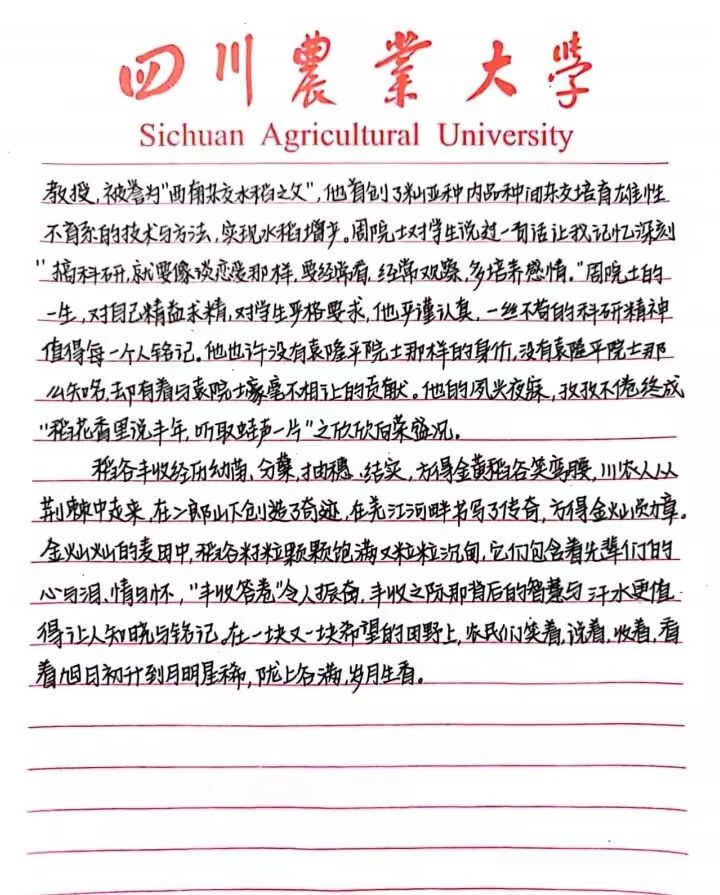 四川農業大学
Sichuan Agricultural University
教授，被誉为"西南杂交水稻之父"，他首创了籼亚种内品种间杂交培育雄性
不育系的技术与方法，实现水稻增产。周院士对学生说过一句话让我记忆深刻
"搞科研，就要像谈恋爱那样，要经常看，经常观察，多培养感情。"周院士的
一生，对自己精益求精，对学生严格要求，他严谨认真，一丝不苟的科研精神
值得每一个人铭记。他也许没有袁隆平院士那样的身价，没有袁隆平院士那
么知名，却有着与袁院士豪毫不相让的贡献。他的夙兴夜寐，孜孜不倦终成
"稻花香里说丰年，听取蛙声一片"之欣欣向荣盛况。
稻谷丰收经历幼苗、分蘖、抽穗、结实，方得金黄稻谷笑弯腰，川农人从
荆棘中走来，在二郎山下创造了奇迹，在羌江河畔书写了传奇，方得金灿灿勋章。
金灿灿的麦田中，稻谷籽粒颗颗饱满又粒粒沉甸，它们包含着先辈们的
心与泪、情与怀，"丰收答卷"令人振奋，丰收之际那背后的智慧与汗水更值
得让人知晓与铭记。在一块又一块希望的田野上，农民们笑着，说着，收着，看
着旭日初升到月明星稀，陇上谷满，岁月生香。